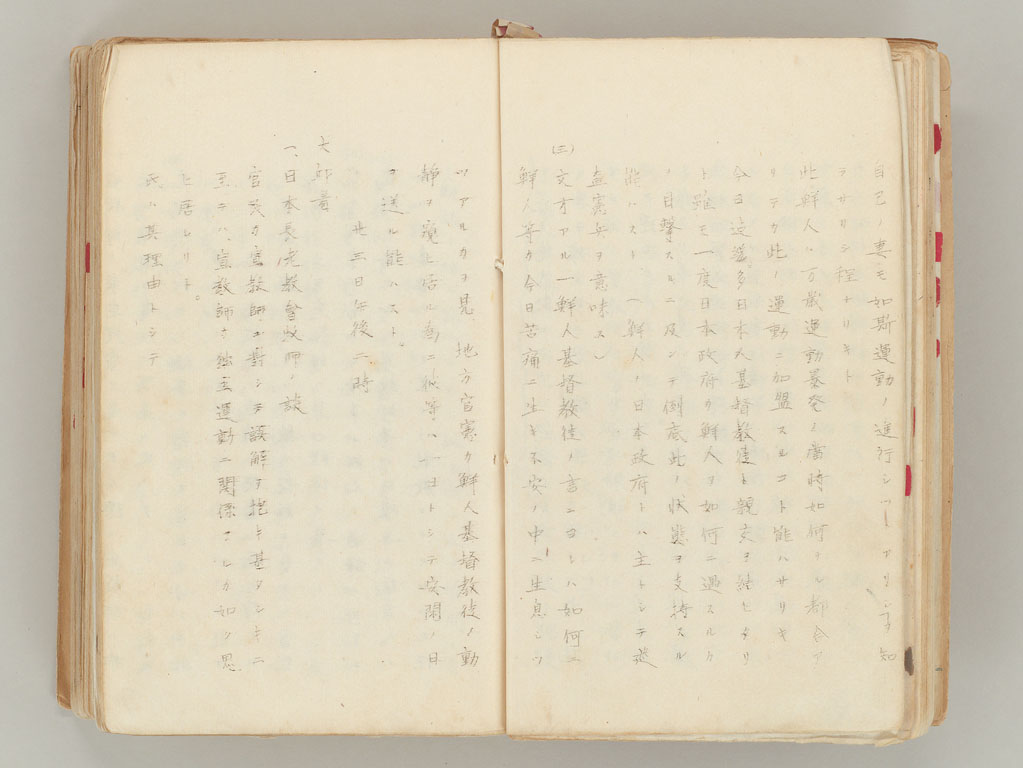 自己ノ妻モ如斯運動ノ進行シツヽアリシヲ知
ラサリシ程ナリキト
此鮮人ハ万歳運動暴発ノ當時如何ナル都合ア
リテカ此ノ運動ニ加盟スルコト能ハサリキ
今日迄幾多日本人基督教徒ト親交ヲ結ヒタリ
ト雖モ一度日本政府カ鮮人ヲ如何ニ遇スルカ
ノ目撃スルニ及ンテ到底此ノ状態ヲ支持スル
能ハスト(鮮人ノ日本政府トハ主トシテ巡
査憲兵ヲ意味ス)
(三)文才アル一鮮人基督教徒ノ言ニヨレハ如何ニ
鮮人等カ今日苦痛ニ生キ不安ノ中ニ生息シツ
ツアルカヲ見地方官憲カ鮮人基督教徒ノ動
静ヲ窺ヒ居ル為ニ彼等ハ一日トシテ安閑ノ日
ヲ送ル能ハスト。
廿三日午後二時
七、郎薹
一、日本長老教會牧師ノ談
官憲カ宣教師ニ對シテ誤解ヲ抱キ甚タシキニ
至テハ、宣教師ヲ独立運動ニ関係アルカ如ク思
ヒ居レリト。
氏ハ其理由トシテ